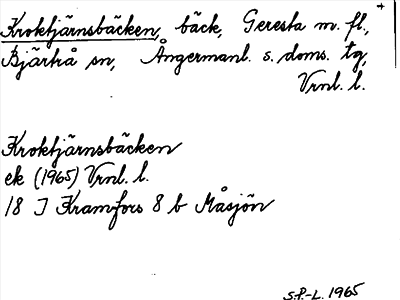 Kroktjärnsbäcken, bäck, Geresta m. fl.,
Bjärtrå sn, Ångermanl. s. doms. tg,
Vrnl. l.
Kroktjärnsbäcken
ek (1965) Vrnl. l.
18 J Kramfors 8 b Måsjön
S.P.-L. 1965